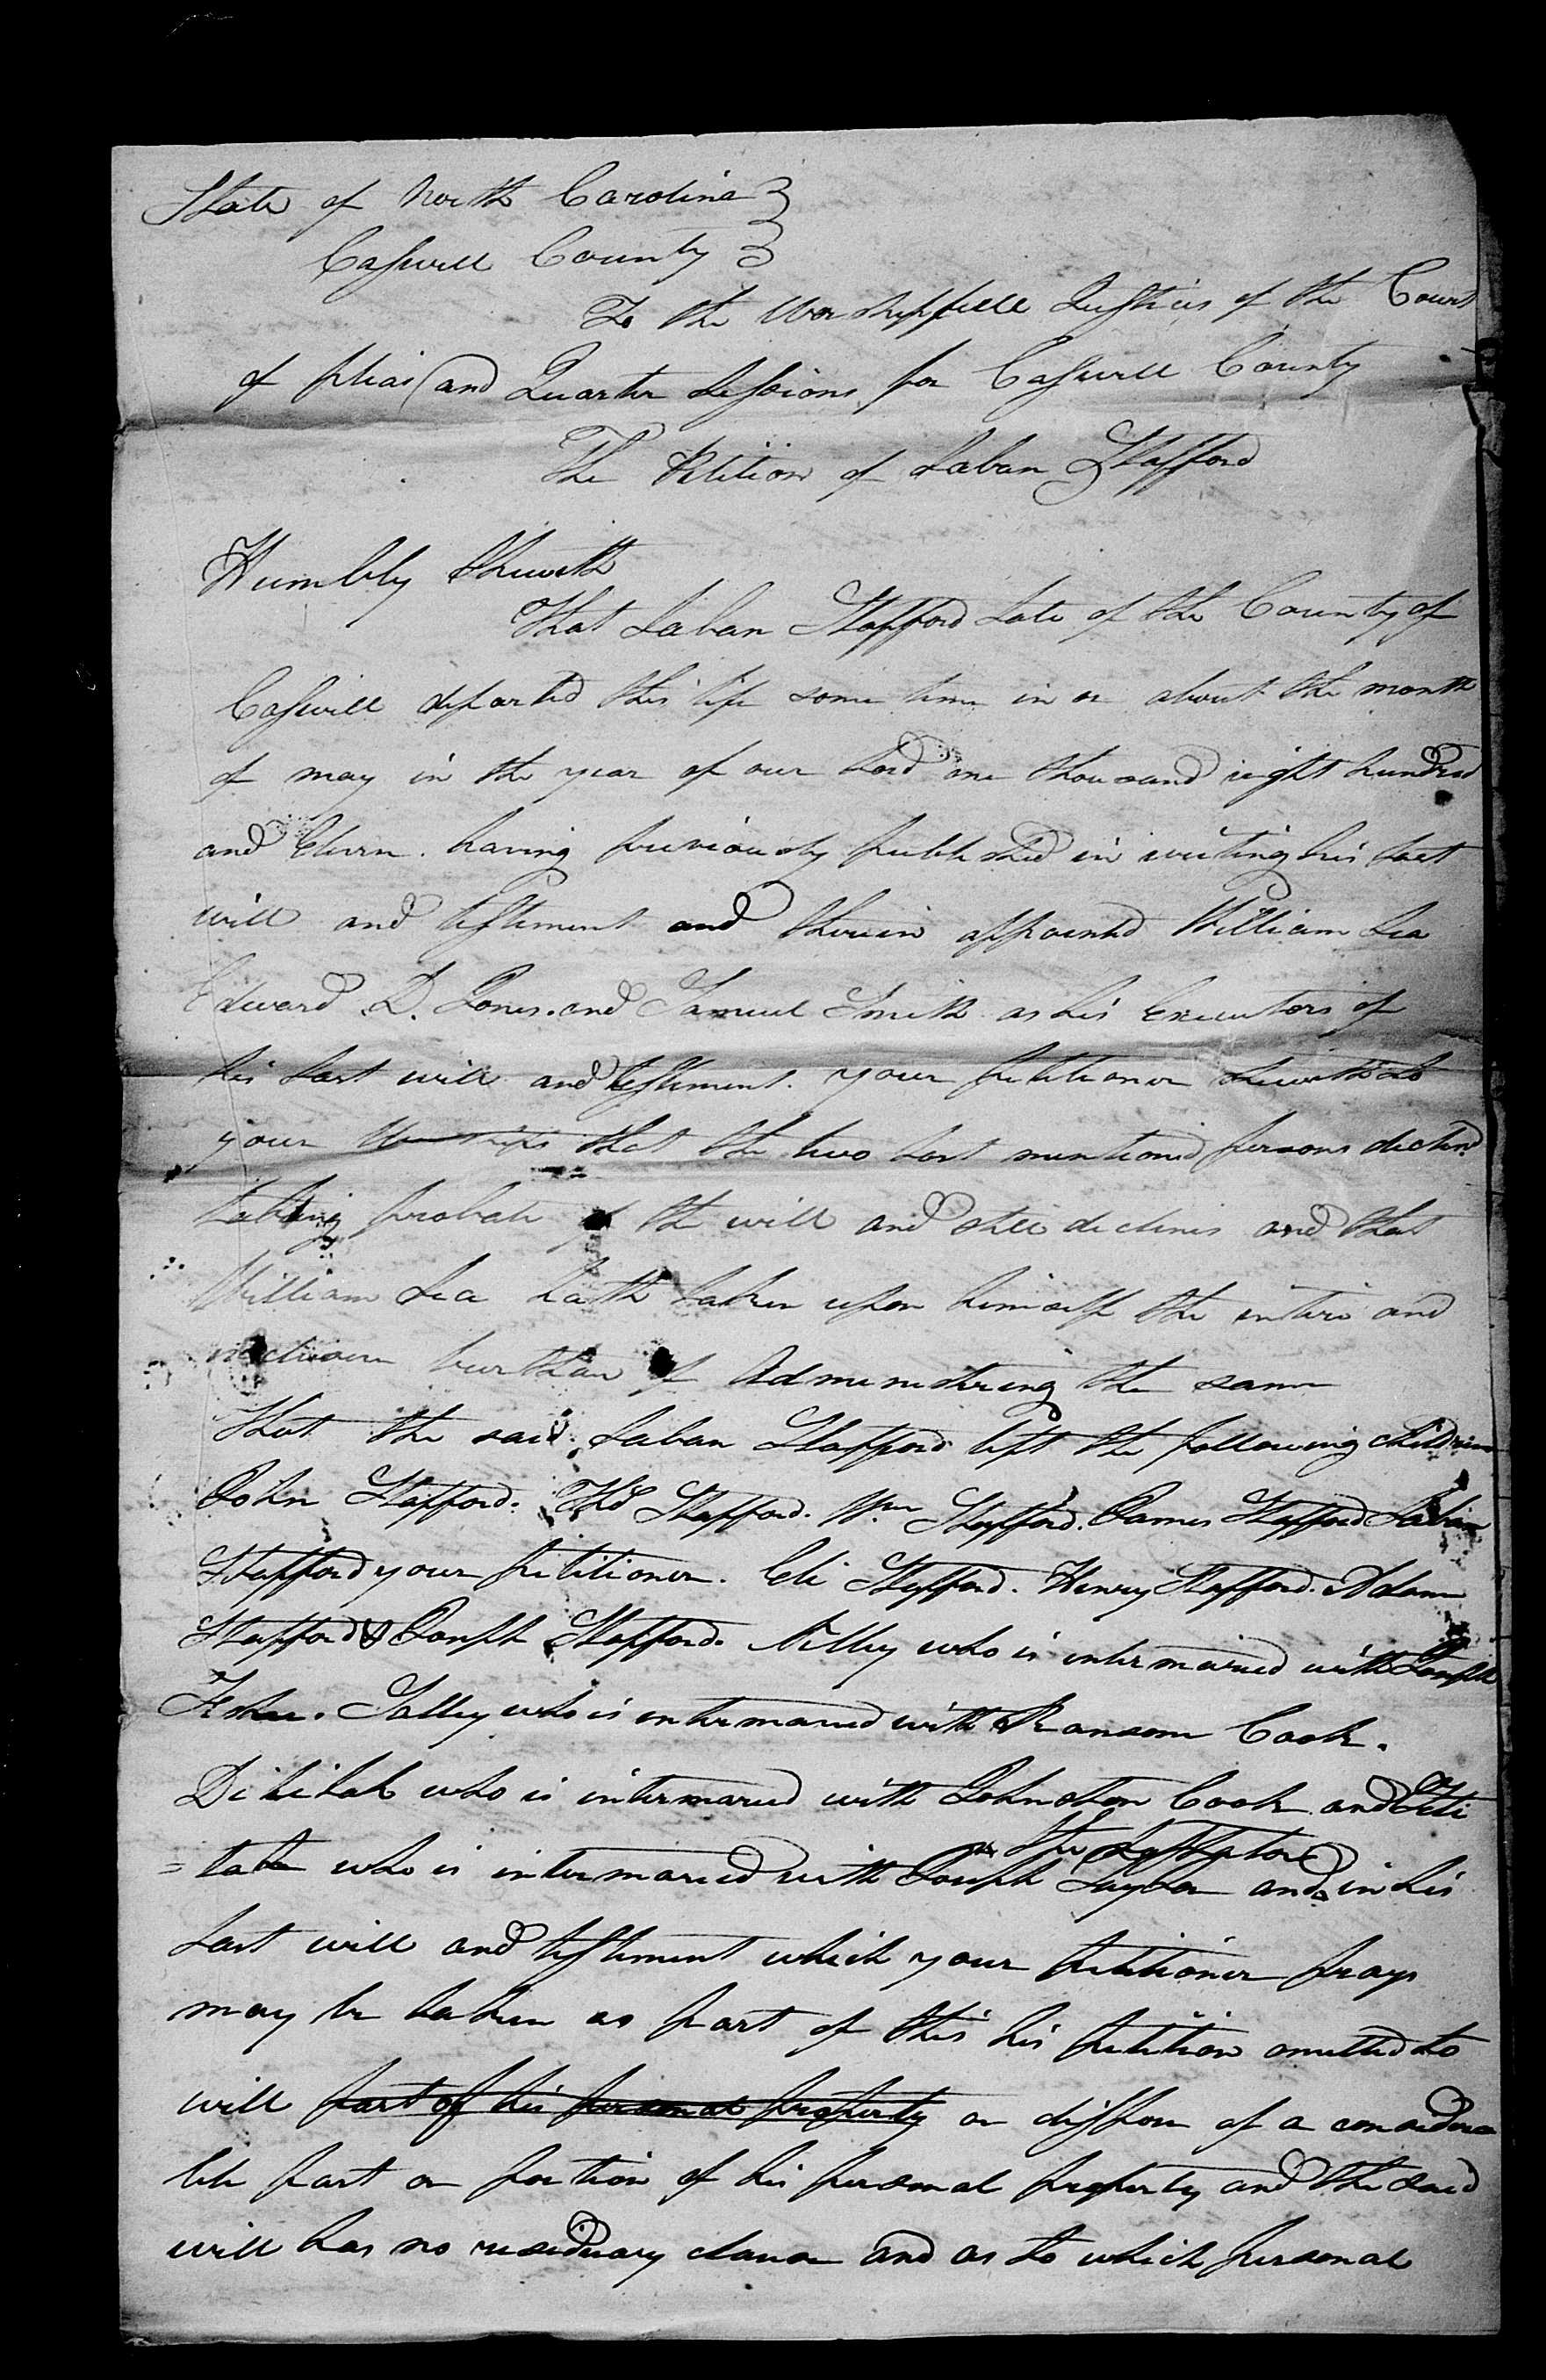 State of North Carolina }
Caswell County }
To the Worshipfull Justices of the Court
of pleas and Quarter Sessions for Caswell County
The Petition of Laban Stafford
Humbly Sheweth
That Laban Stafford Late of the County of
Caswell departed this life some time in or about the month
of may in the year of our Lord one thousand eight hundred
and Eleven. having previously published in writing his last
will and testiment and therein appointed William Lea
Edward D. Jones. and Samuel Smith as his Executors of
his last will and testiment. your petitioner sheweth to
your Worships that the two last mentioned persons declind
taking probate of the will and still declines and that
William Lea hath taken upon himself the entire and
burthan of Administering the same
That the said Laban Stafford left the following children
John Stafford. Thos Stafford. Wm Stafford. James Stafford Laban
Stafford your petitioner. Eli Stafford. Henry Stafford. Adam
Stafford & Joseph Stafford. Milley who is intermarried with Joseph
Salley who is intermarried with Ransom Cook.
who is intermaried with Johnston Cook and
who is intermaried with Joseph and in his
the
last will and testiment which your petitioner prays
may be taken as part of this his petition omitted to
will part of his personal property or dispose of a considera
ble part or portion of his personal property and the said
will has no residuary clause and as to which personal